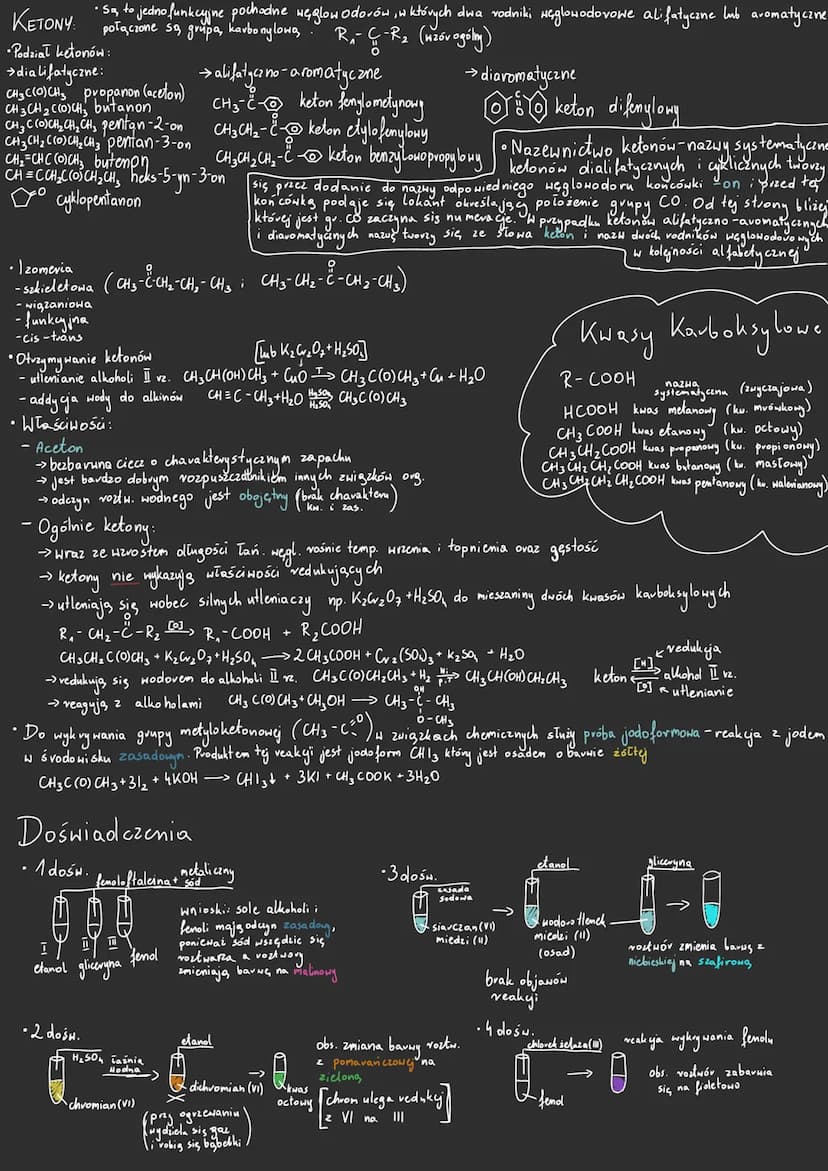 KETONY:
• Są to jednofunkcyjne pochodne węglowodorów, w których dwa rodniki węglowodorowe alifatyczne lub aromatyczne
połączone są grupą karbonylową. R₁-C-R₂ (wzór ogólny)
O
• Podział ketonów:
→ dialifatyczne:
CH₃C(O)CH₃ propanon (aceton)
CH₃CH₂C(O)CH₃ butanon
CH₃C(O)CH₂CH₂CH₃ pentan-2-on
CH₃CH₂C(O)CH₂CH₃ pentan-3-on
CH₂=CHC(O)CH₃ butenon
CH≡CCH₂C(O)CH₂CH₃ heks-5-yn-3-on
O cyklopentanon
→ alifatyczno-aromatyczne
CH₃-C- keton fenylometynowy
CH₃CH₂-C- keton etylofenylowy
CH₃CH₂CH₂-C- keton benzylowopropylowy
→ diaromatyczne
keton difenylowy
• Nazewnictwo ketonów-nazwy systematyczne
ketonów dialifatycznych i cyklicznych tworzy
się przez dodanie do nazwy odpowiedniego węglowodoru końcówki -on i przed tą
końcówką podaje się lokant określającą położenie grupy CO. Od tej strony bliżej
której jest gr. CO zaczyna się numeracje. W przypadku ketonów alifatyczno-aromatycznych
i diaromatycznych nazwę tworzy się ze słowa keton i nazw dwóch rodników węglowodorowych
w kolejności alfabetycznej
• Izomeria
- szkieletowa (CH₃-C-CH₂-CH₂-CH₃ ; CH₃-CH₂-C-CH₂-CH₃)
- wiązaniowa
- funkcyjna
- cis-trans
• Otrzymywanie ketonów [lub K₂Cr₂O₇+H₂SO₄]
- utlenianie alkoholi II rz. CH₃CH(OH)CH₃ + CuO T→ CH₃C(O)CH₃+Cu+H₂O
- addycja wody do alkinów CH≡C-CH₃+H₂O HgSO₄ H₂SO₄ CH₃C(O)CH₃
• Właściwości:
- Aceton
→ bezbarwna ciecz o charakterystycznym zapachu
→ jest bardzo dobrym rozpuszczalnikiem innych związków org.
→ odczyn roztw. wodnego jest obojętny (brak charakteru
kw. i zas.)
- Ogólnie ketony:
→ wraz ze wzrostem długości łań. węgl. rośnie temp. wrzenia i topnienia oraz gęstość
→ ketony nie wykazują właściwości redukujących
→ utleniają się wobec silnych utleniaczy np. K₂Cr₂O₇+H₂SO₄ do mieszaniny dwóch kwasów karboksylowych
R₁-CH₂-C-R₂ [O]→ R₁-COOH + R₂COOH
CH₃CH₂C(O)CH₃ + K₂Cr₂O₇+H₂SO₄ → 2CH₃COOH + Cr₂(SO₄)₃ + K₂SO₄ + H₂O
→ redukują się wodorem do alkoholi II rz. CH₃C(O)CH₂CH₃+H₂ Ni p.T CH₃CH(OH)CH₂CH₃
redukcja
keton [H] [O] alkohol II rz.
utlenianie
→ reagują z alkoholami CH₃C(O)CH₃+CH₃OH → CH₃-C-CH₃
OH
O-CH₃
• Do wykrywania grupy metyloketonowej (CH₃-C=O) w związkach chemicznych służy próba jodoformowa - reakcja z jodem
w środowisku zasadowym. Produktem tej reakcji jest jodoform CHI₃ który jest osadem o barwie żółtej
CH₃C(O)CH₃+3I₂ + 4KOH → CHI₃↓ + 3KI + CH₃COOK + 3H₂O
Kwasy Karboksylowe
R-COOH nazwa
systematyczna (zwyczajowa)
HCOOH kwas metanowy (kw. mrówkowy)
CH₃COOH kwas etanowy (kw. octowy)
CH₃CH₂COOH kwas propanowy (kw. propionowy)
CH₃CH₂CH₂COOH kwas butanowy (kw. masłowy)
CH₃CH₂CH₂CH₂COOH kwas pentanowy (kw. walerianowy)
Doświadczenia
• 1 dośw.
fenoloftaleina + metaliczny
sód
I II III
etanol gliceryna fenol
wnioski: sole alkoholi i
fenoli mają odczyn zasadowy,
ponieważ sód wszędzie się
roztwarza a roztwory
zmieniają barwę na malinowy
• 3 dośw.
zasada
sodowa
siarczan(VI)
miedzi (II)
etanol
wodorotlenek
miedzi (II)
(osad)
brak objawów
reakcji
gliceryna
roztwór zmienia barwę z
niebieskiej na szafirową
• 2 dośw.
H₂SO₄ łaźnia
wodna
chromian(VI)
etanol
dichromian (VI)
(przy ogrzewaniu
wydziela się gaz
i robią się bąbelki)
kwas
octowy
obs. zmiana barwy roztw.
z pomarańczowej na
zieloną
[chrom ulega redukcji
z VI na III]
• 4 dośw.
chlorek żelaza(III)
fenol
reakcja wykrywania fenolu
obs. roztwór zabarwia
się na fioletowo